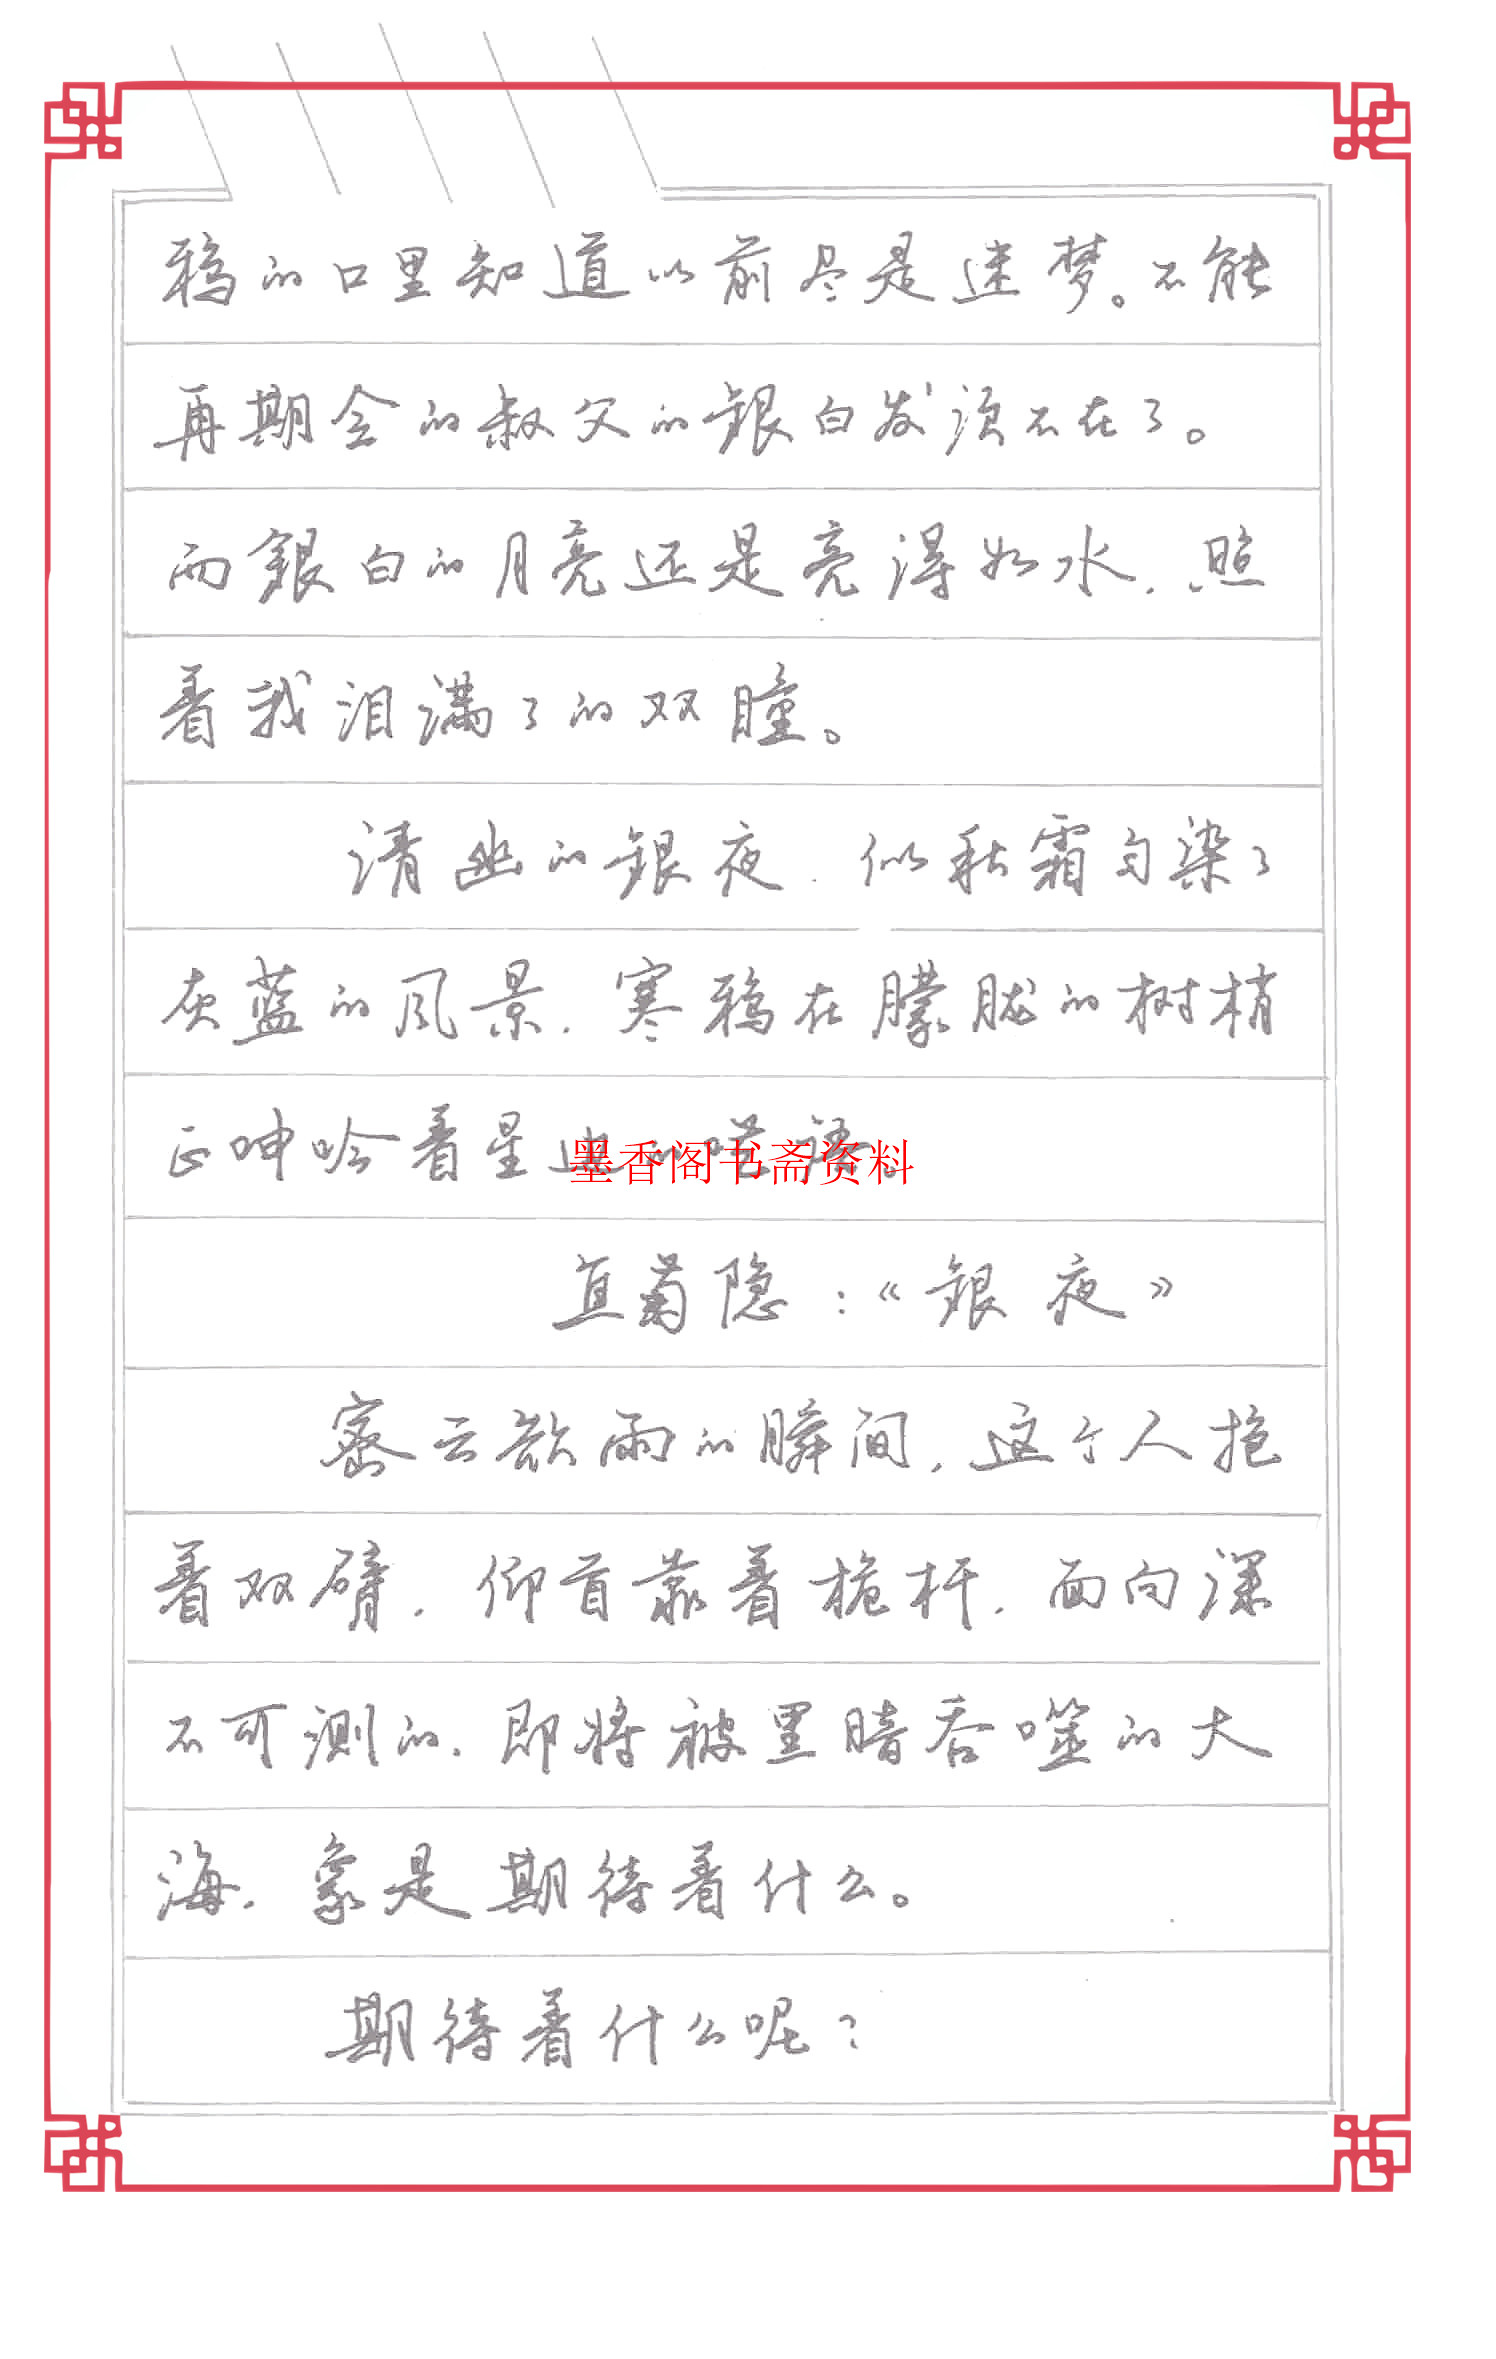 鸦的口里知道以前尽是迷梦。不能
再期会的叔父的銀白发须不在了。
而銀白的月亮还是亮得如水,照
着我泪满了的双瞳。
清幽的銀夜,似秋霜匀染了
灰蓝的风景,寒鸦在朦胧的树梢
正呻吟着星
墨香阁书斋资料
菊隐:《銀夜》
密云欲雨的瞬间,这个人抱
着双臂,仰首靠着桅杆,面向深
不可测的,即将被黑暗吞噬的大
海,象是期待着什么。
期待着什么呢?